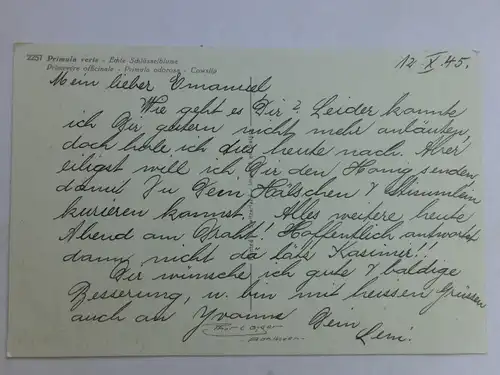 2257 Primula veris - Echte Schlüsselblume
Primevère officinale - Primula odorosa - Cowslip
12. X. 45.
Mein lieber Emanuel,
Wie geht es Dir? Leider konnte
ich Dir gestern nicht mehr anläuten,
doch hole ich dies heute nach. Aber
eiligst will ich Dir den Honig senden,
damit Du Dein Hälschen & Stimmlein
kurieren kannst. Alles weitere heute
Abend am Draht! Hoffentlich antwortet
dann nicht da läts Kasimir!!
Dir wünsche ich gute & baldige
Besserung, u. bin mit heissen Grüssen
auch an Yvonne Dein
Leni.